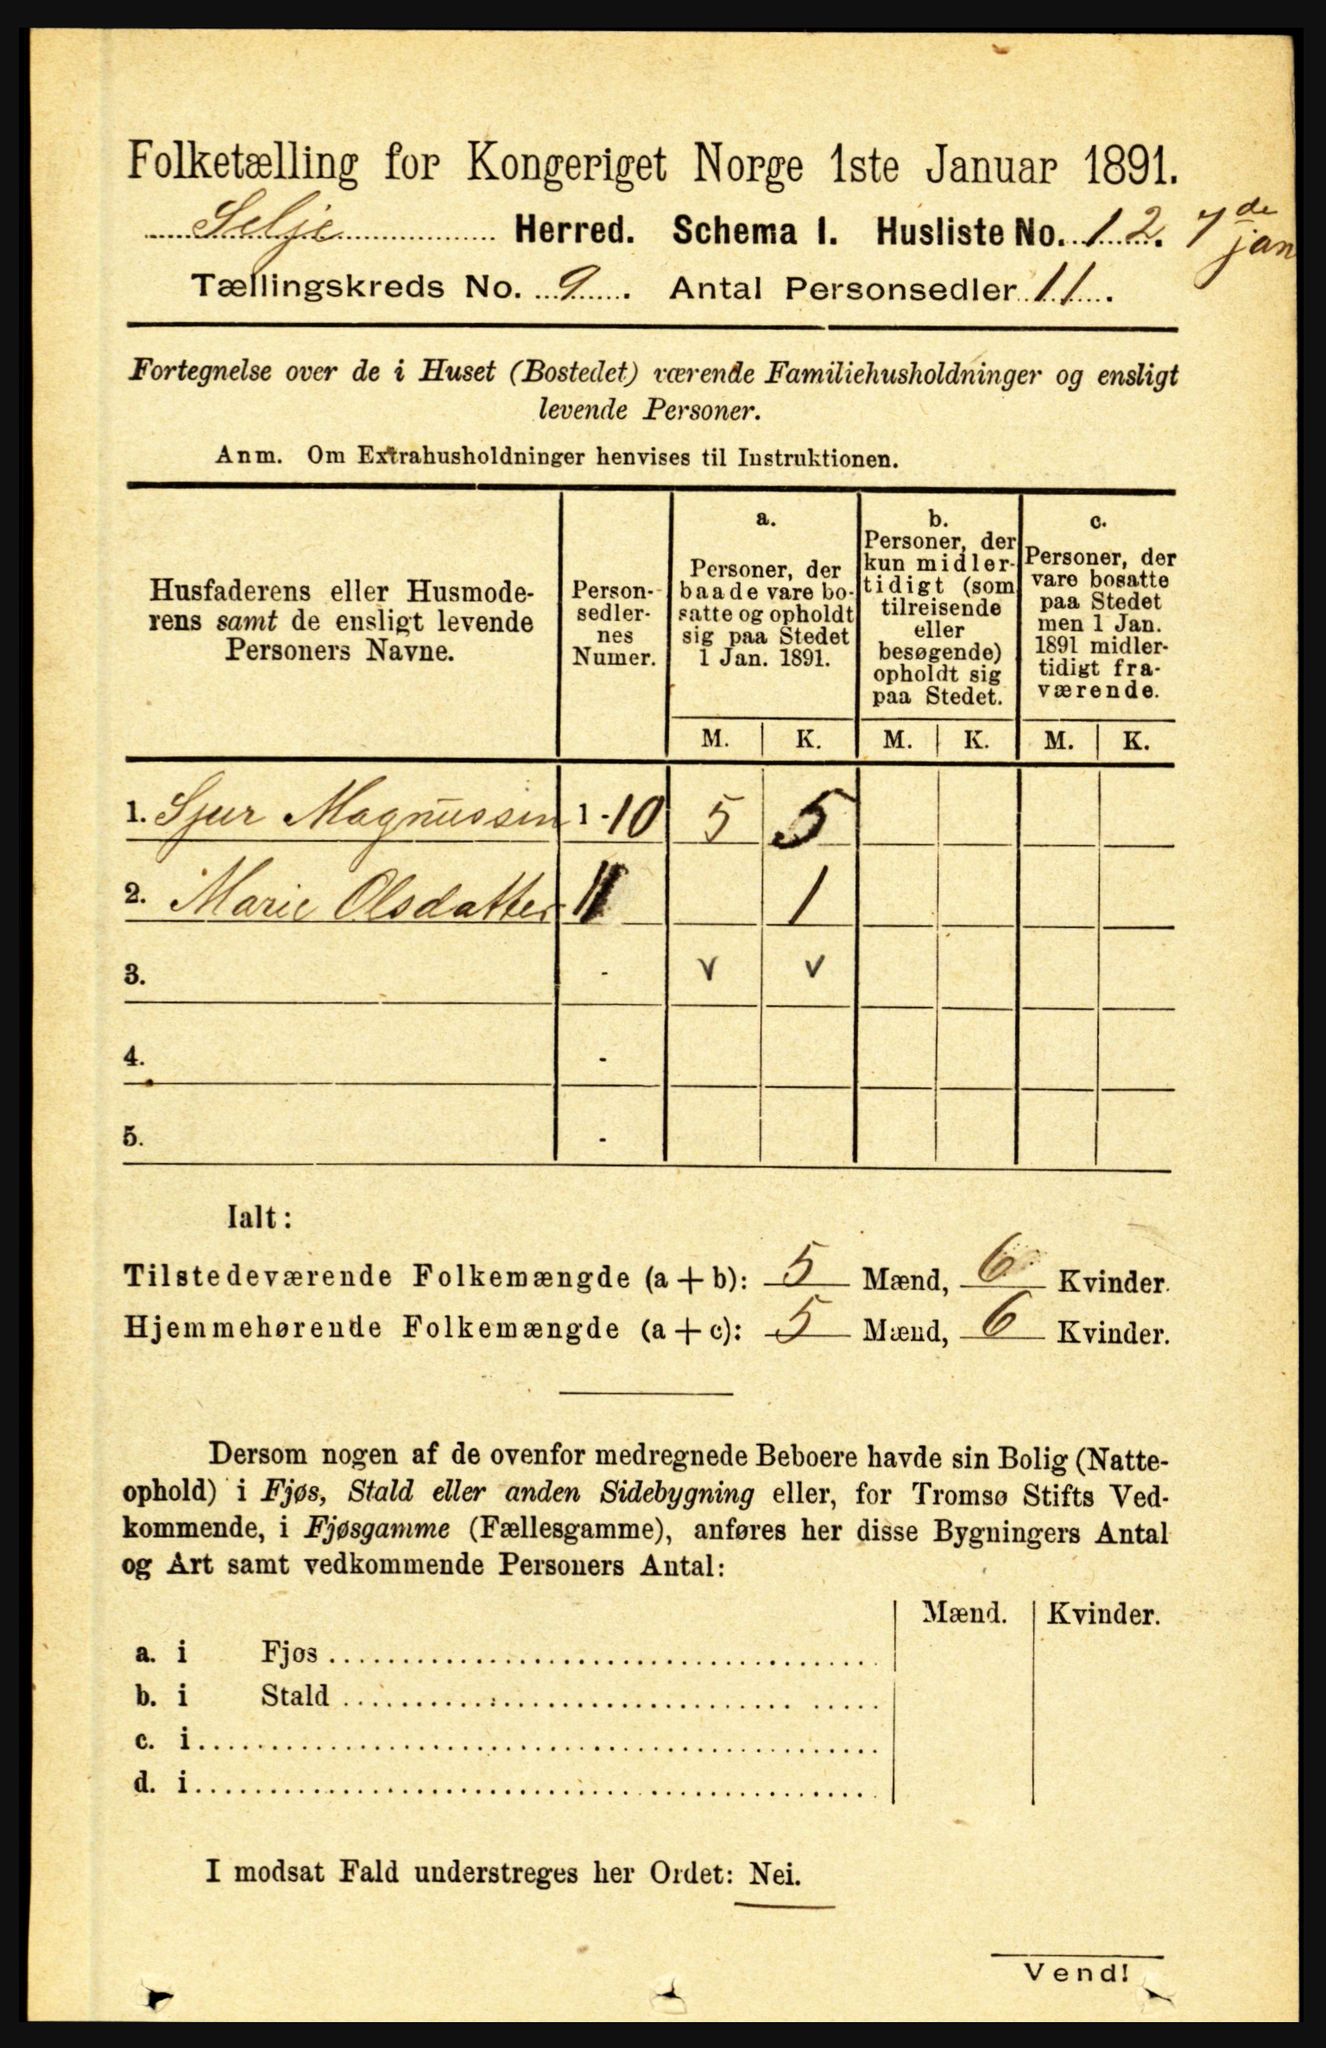 Folketælling for Kongeriget Norge 1ste Januar 1891.
Selje Herred. Schema I. Husliste No. 12. 7de jan
Tællingskreds No. 9. Antal Personsedler 11.
Fortegnelse over de i Huset (Bostedet) værende Familiehusholdninger og ensligt
levende Personer.
Anm. Om Extrahusholdninger henvises til Instruktionen.
Husfaderens eller Husmode-
rens samt de ensligt levende
Personers Navne.
Person-
sedler-
nes
Numer.
a.
Personer, der
baade vare bo-
satte og opholdt
sig paa Stedet
1 Jan. 1891.
b.
Personer, der
kun midler-
tidigt (som
tilreisende
eller
besøgende)
opholdt sig
paa Stedet.
c.
Personer, der
vare bosatte
paa Stedet
men 1 Jan.
1891 midler-
tidigt fra-
værende.
M. K. M. K. M. K.
1. Sjur Magnussen 1-10 5 5
2. Marie Olsdatter 11 1
3. - v v
4. -
5. -
Ialt:
Tilstedeværende Folkemængde (a + b): 5 Mænd, 6 Kvinder.
Hjemmehørende Folkemængde (a + c): 5 Mænd, 6 Kvinder.
Dersom nogen af de ovenfor medregnede Beboere havde sin Bolig (Natte-
ophold) i Fjøs, Stald eller anden Sidebygning eller, for Tromsø Stifts Ved-
kommende, i Fjøsgamme (Fællesgamme), anføres her disse Bygningers Antal
og Art samt vedkommende Personers Antal:
Mænd. Kvinder.
a. i Fjøs
b. i Stald
c. i
d. i
I modsat Fald understreges her Ordet: Nei.
Vend!